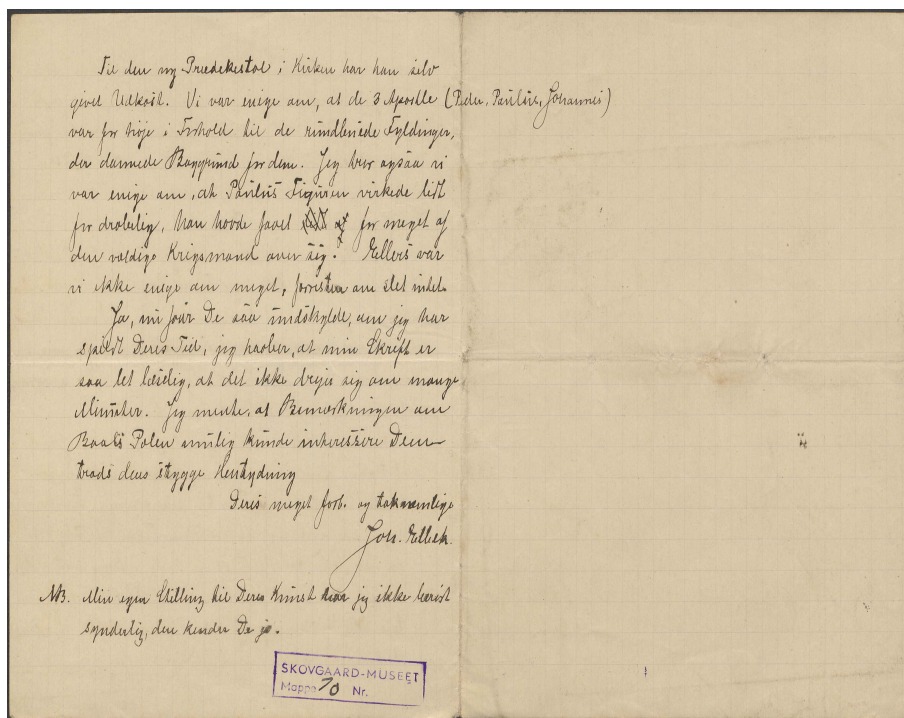 Til den ny Prædikestol i Kirken har han selv
givet Udkast. Vi var enige om, at de 3 Apostle (Peder, Paulus, Johannes)
var for høje i Forhold til de rundbuede Fyldinger,
der dannede Baggrund for dem. Jeg tror ogsaa vi
var enige om, at Paulus Figuren virkede lidt
for drabelig, han havde faaet for meget af
den vældige Krigsmand over sig. Ellers var
vi ikke enige om meget, forresten om slet intet.
Ja, nu faar De saa undskylde, om jeg har
spildt Deres Tid, jeg haaber, at min Skrift er
saa let læselig, at det ikke drejer sig om mange
Minuter. Jeg mente, at Bemærkningen om
Polen mulig kunde interessere Dem
trods dens stygge Hentydning
Deres meget forb. og taknemlige
Joh.
NB. Min egen Stilling til Deres Kunst har jeg ikke berørt
synderlig, den kender De jo.
SKOVGAARD-MUSEET
Mappe 70 Nr.